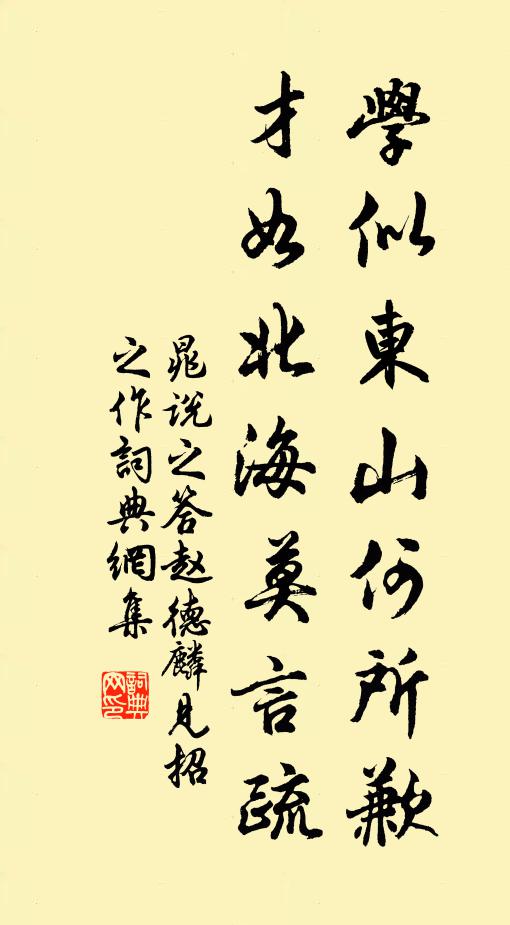 學似東山何所歉
才如北海莫言疏
晁說之答赵德麟見招
之作詞典網集
詞典网印